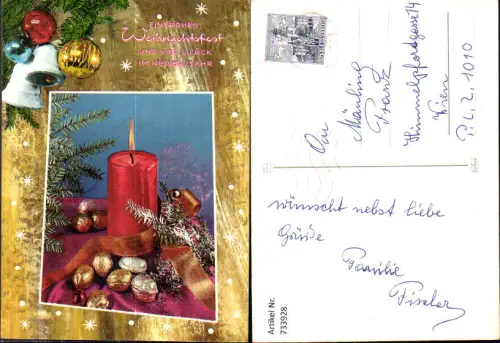 EIN FROHES
Weihnachtsfest
UND VIEL GLÜCK
IM NEUEN JAHR
An
Franz
Himmelpfortgasse 14
Wien
P.L.Z. 1010
wünscht nebst liebe
Grüße
Familie
Fischer
Artikel Nr.
733928